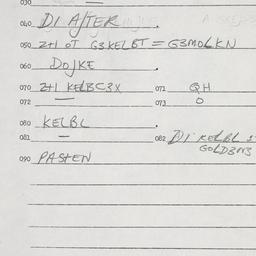 030
040 DI AfTER
050 2+1 OT G3KELBT = G3MOLKN
060 DOJKE
070 2+1 KELBC3X 071 QH
072 — 073 O
080 KELBL
081 — 082 DI KELBL
GOLD3MS
090 PASTEN